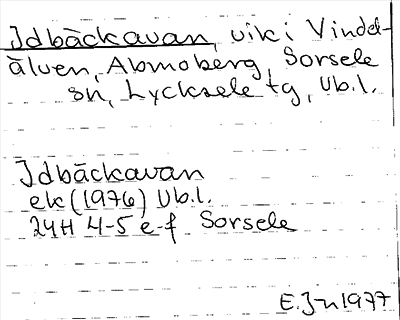 Idbäckavan, vik i Vindel-
älven, Abmoberg, Sorsele
sn, Lycksele tg, Vb.l.
Idbäckavan
ek (1976) Vb.l.
24H 4-5 e-f Sorsele
E.Jn 1977